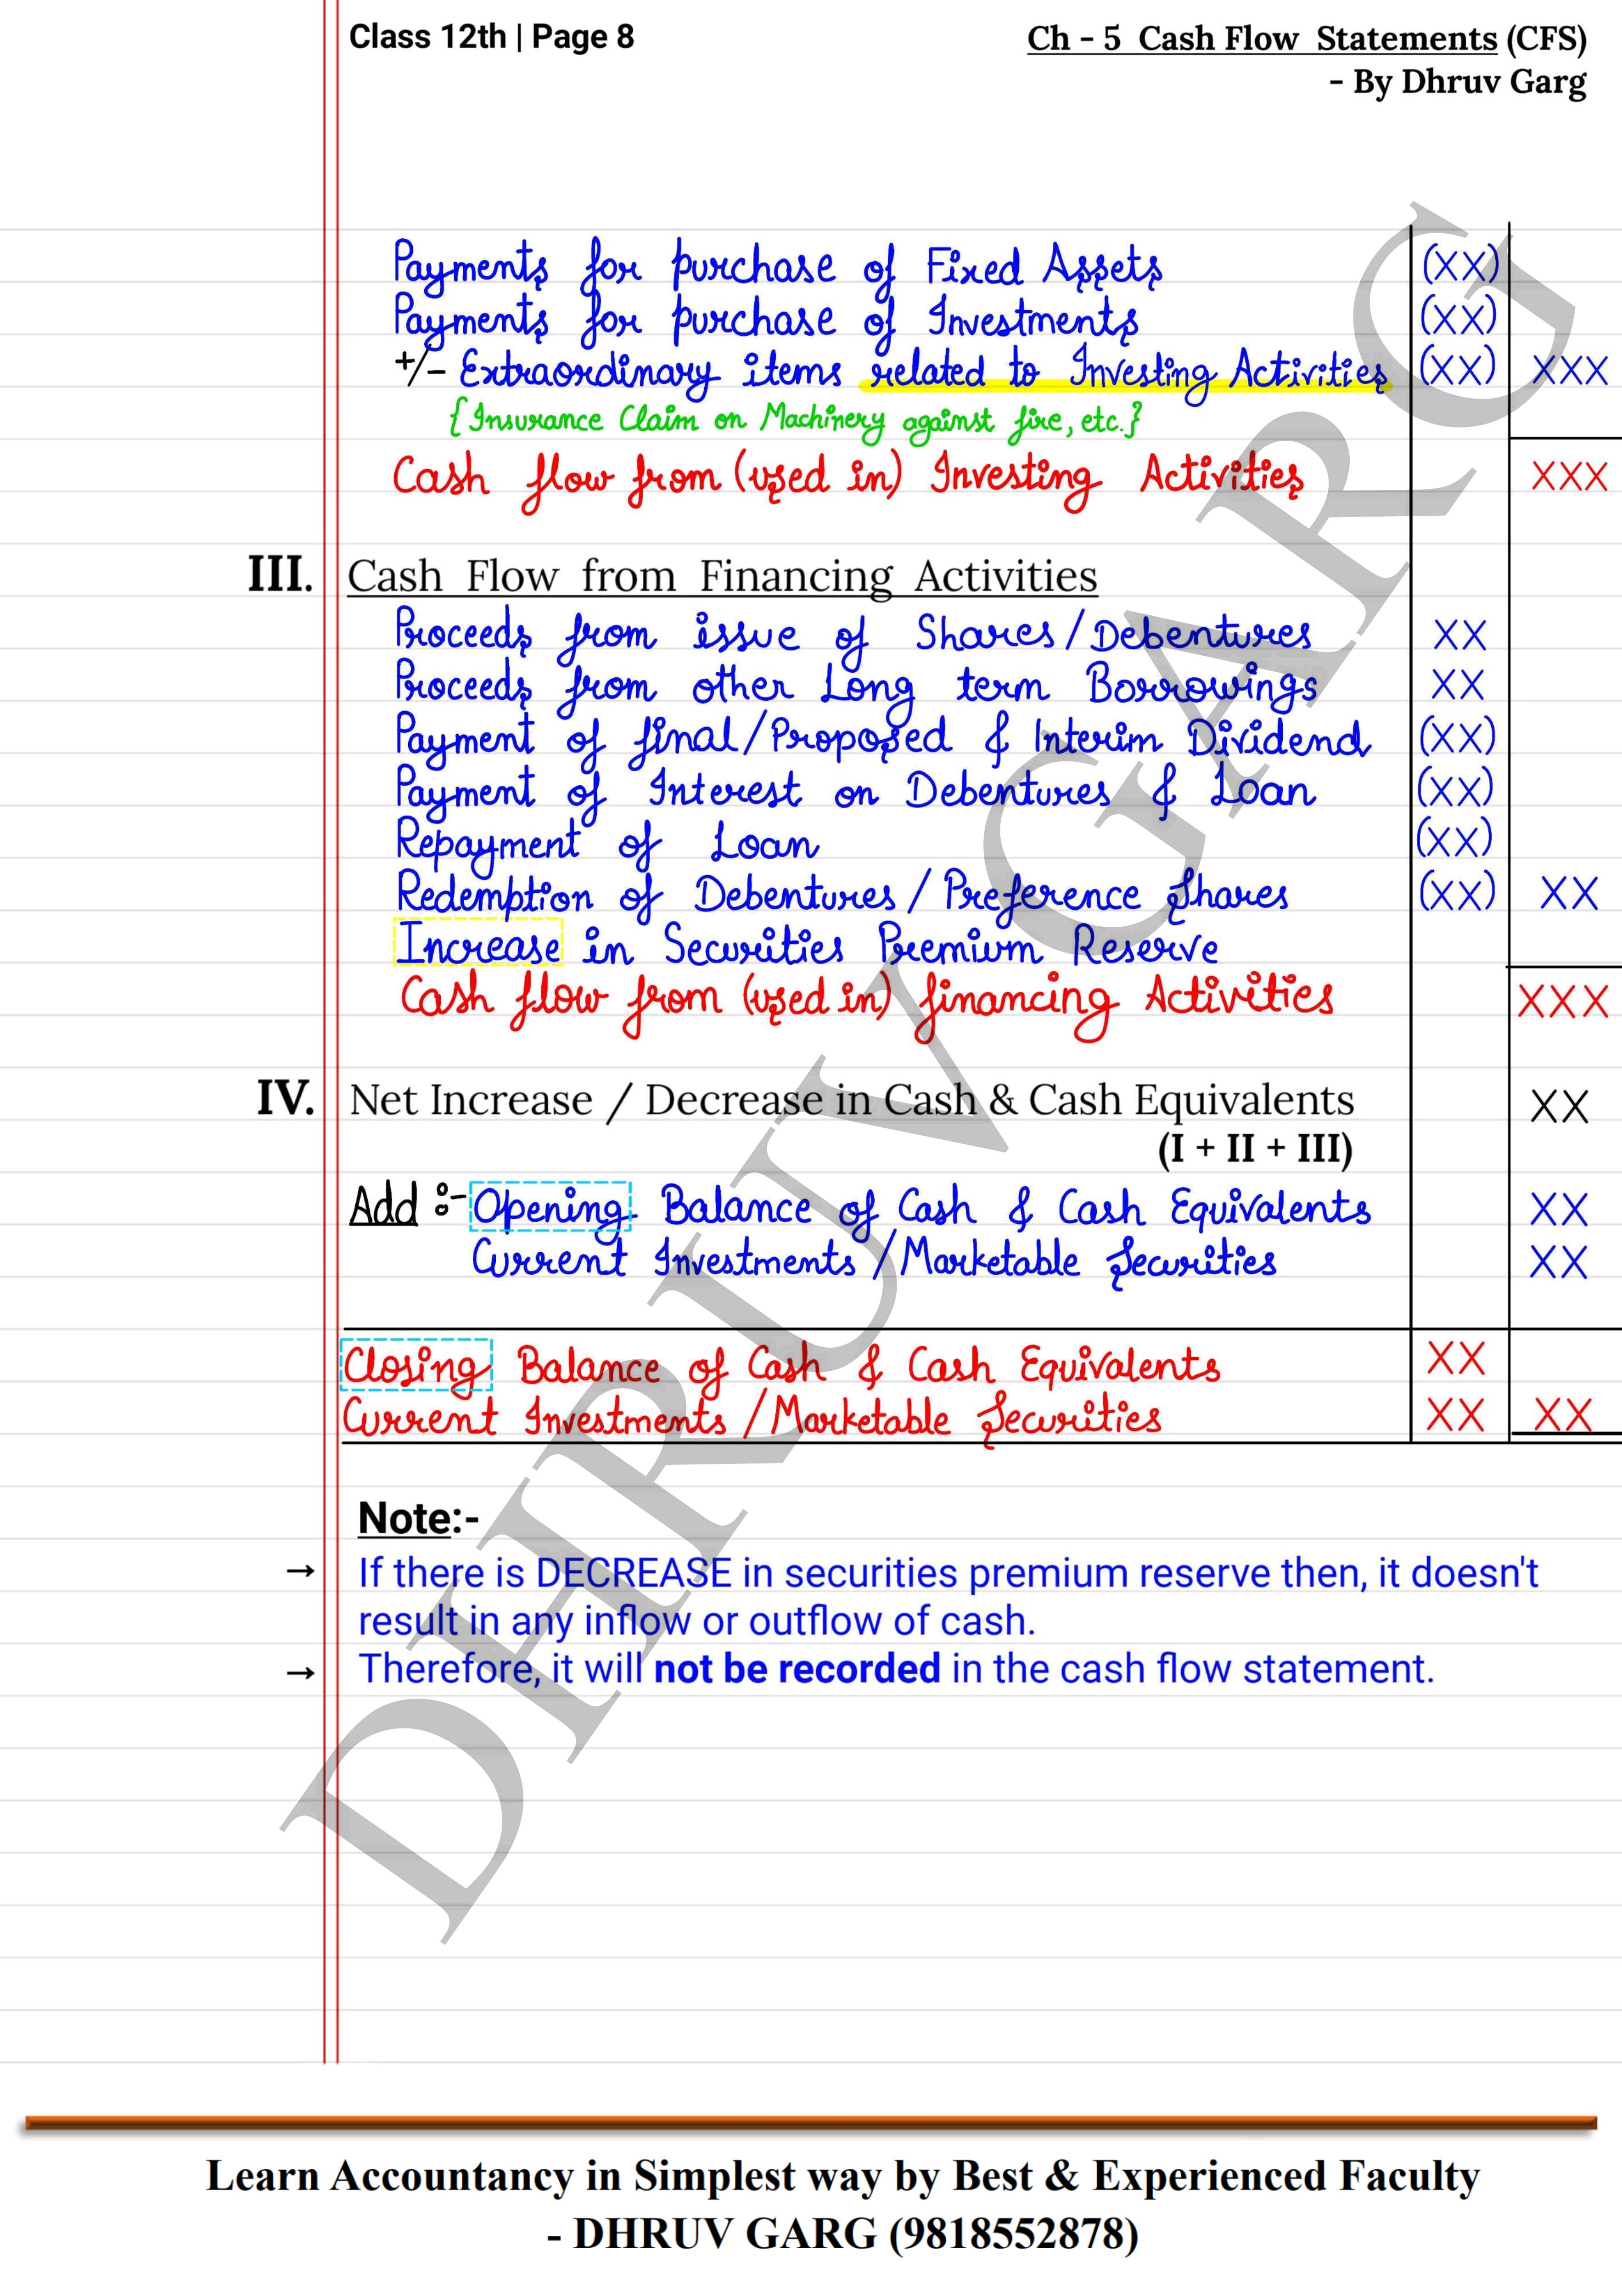 Class 12th | Page 8
Ch - 5 Cash Flow Statements (CFS)
- By Dhruv Garg
Payments for purchase of Fixed Assets (XX)
Payments for purchase of Investments (XX)
+/- Extraordinary items related to Investing Activities (XX) XXX
{Insurance Claim on Machinery against fire, etc.}
Cash flow from (used in) Investing Activities XXX
III. Cash Flow from Financing Activities
Proceeds from issue of Shares/Debentures XX
Proceeds from other Long term Borrowings XX
Payment of final/Proposed & Interim Dividend (XX)
Payment of Interest on Debentures & Loan (XX)
Repayment of Loan (XX)
Redemption of Debentures / Preference Shares (XX) XX
Increase in Securities Premium Reserve
Cash flow from (used in) financing Activities XXX
IV. Net Increase / Decrease in Cash & Cash Equivalents XX
(I + II + III)
Add :- Opening Balance of Cash & Cash Equivalents XX
Current Investments /Marketable Securities XX
Closing Balance of Cash & Cash Equivalents XX
Current Investments /Marketable Securities XX XX
Note:-
→ If there is DECREASE in securities premium reserve then, it doesn't
result in any inflow or outflow of cash.
→ Therefore, it will not be recorded in the cash flow statement.
DHRUV GARG
Learn Accountancy in Simplest way by Best & Experienced Faculty
- DHRUV GARG (9818552878)